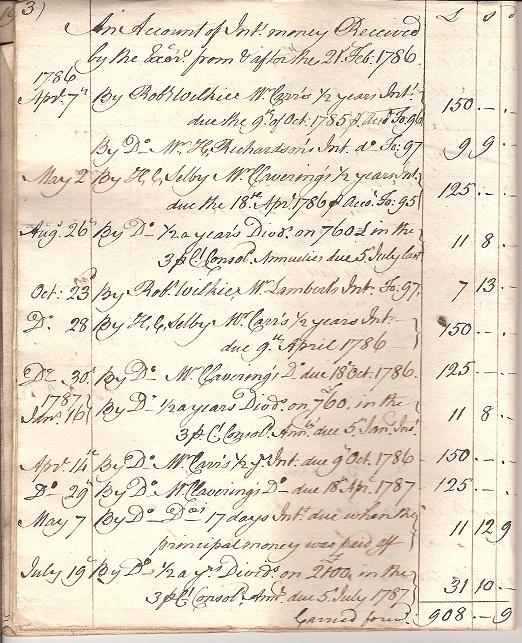 3)
An Account of Int.s money Received £ s
by the Exõrs from & after the 21st Feb. 1786.
1786
Apr. 7th By Rob.t Wilkie Mr. Carr's ½ years Int.t
due the 9th of Oct. 1785 p Acct. Fo: 96 150 . – . –
By Do. Mr. H. C. Richardson's Int. do. Fo: 97 9 9 . –
May 2d By H. C. Selby Mr. Clavering's ½ years Int.
due the 18th Apr. 1786 p Acco. Fo: 95 125 . – . –
Aug. 26th By Do. ½ a year's Divd. on 760£ in the
3 p Ct. Consol. Annuities due 5 July last 11 8 . –
Oct. 23d By Rob.t Wilkie, Mr. Lambert's Int. Fo: 97. 7 13 . –
Do. 28 By H. C. Selby Mr. Carr's ½ years Int.
due 9th April 1786 150 . – . –
Do. 30th By Do. Mr. Clavering's Do. due 18 Oct. 1786. 125 . – . –
1787
Jan. 16th By Do. ½ a years Divd. on £760, in the
3 p C. Consol. Ann.s due 5 Jan. Inst. 11 8 . –
Apr. 14th By Do. Mr. Carr's ½ yr. Int. due 9th Oct. 1786 150 . – . –
Do. 29th By Do. Mr. Clavering's Do. due 18 Apr. 1787 125 . – . –
May 7 By Do. Do.s 17 days Int. due when the
principal money was paid off 11 12 9
July 19th By Do. ½ a yr.s Divd. on £2100, in the
3 p Ct. Consol. Ann. due 5 July 1787 31 10 . –
Carried forwd. 908 . – 9